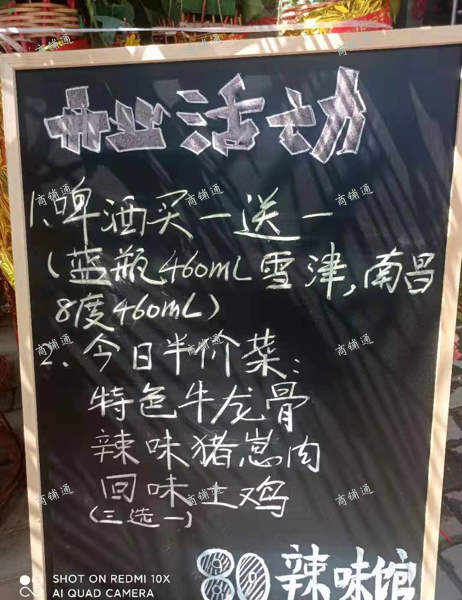 开业活动
1、啤酒买一送一
(蓝瓶460mL雪津,南昌
8度460mL)
2、今日半价菜:
特色牛龙骨
辣味猪崽肉
回味土鸡
(三选一)
80 辣味馆
SHOT ON REDMI 10X
AI QUAD CAMERA
商铺通
商铺通
商铺通
商铺通
商铺通
商铺通
商铺通
商铺通
商铺通
商铺通
商铺通
商铺通